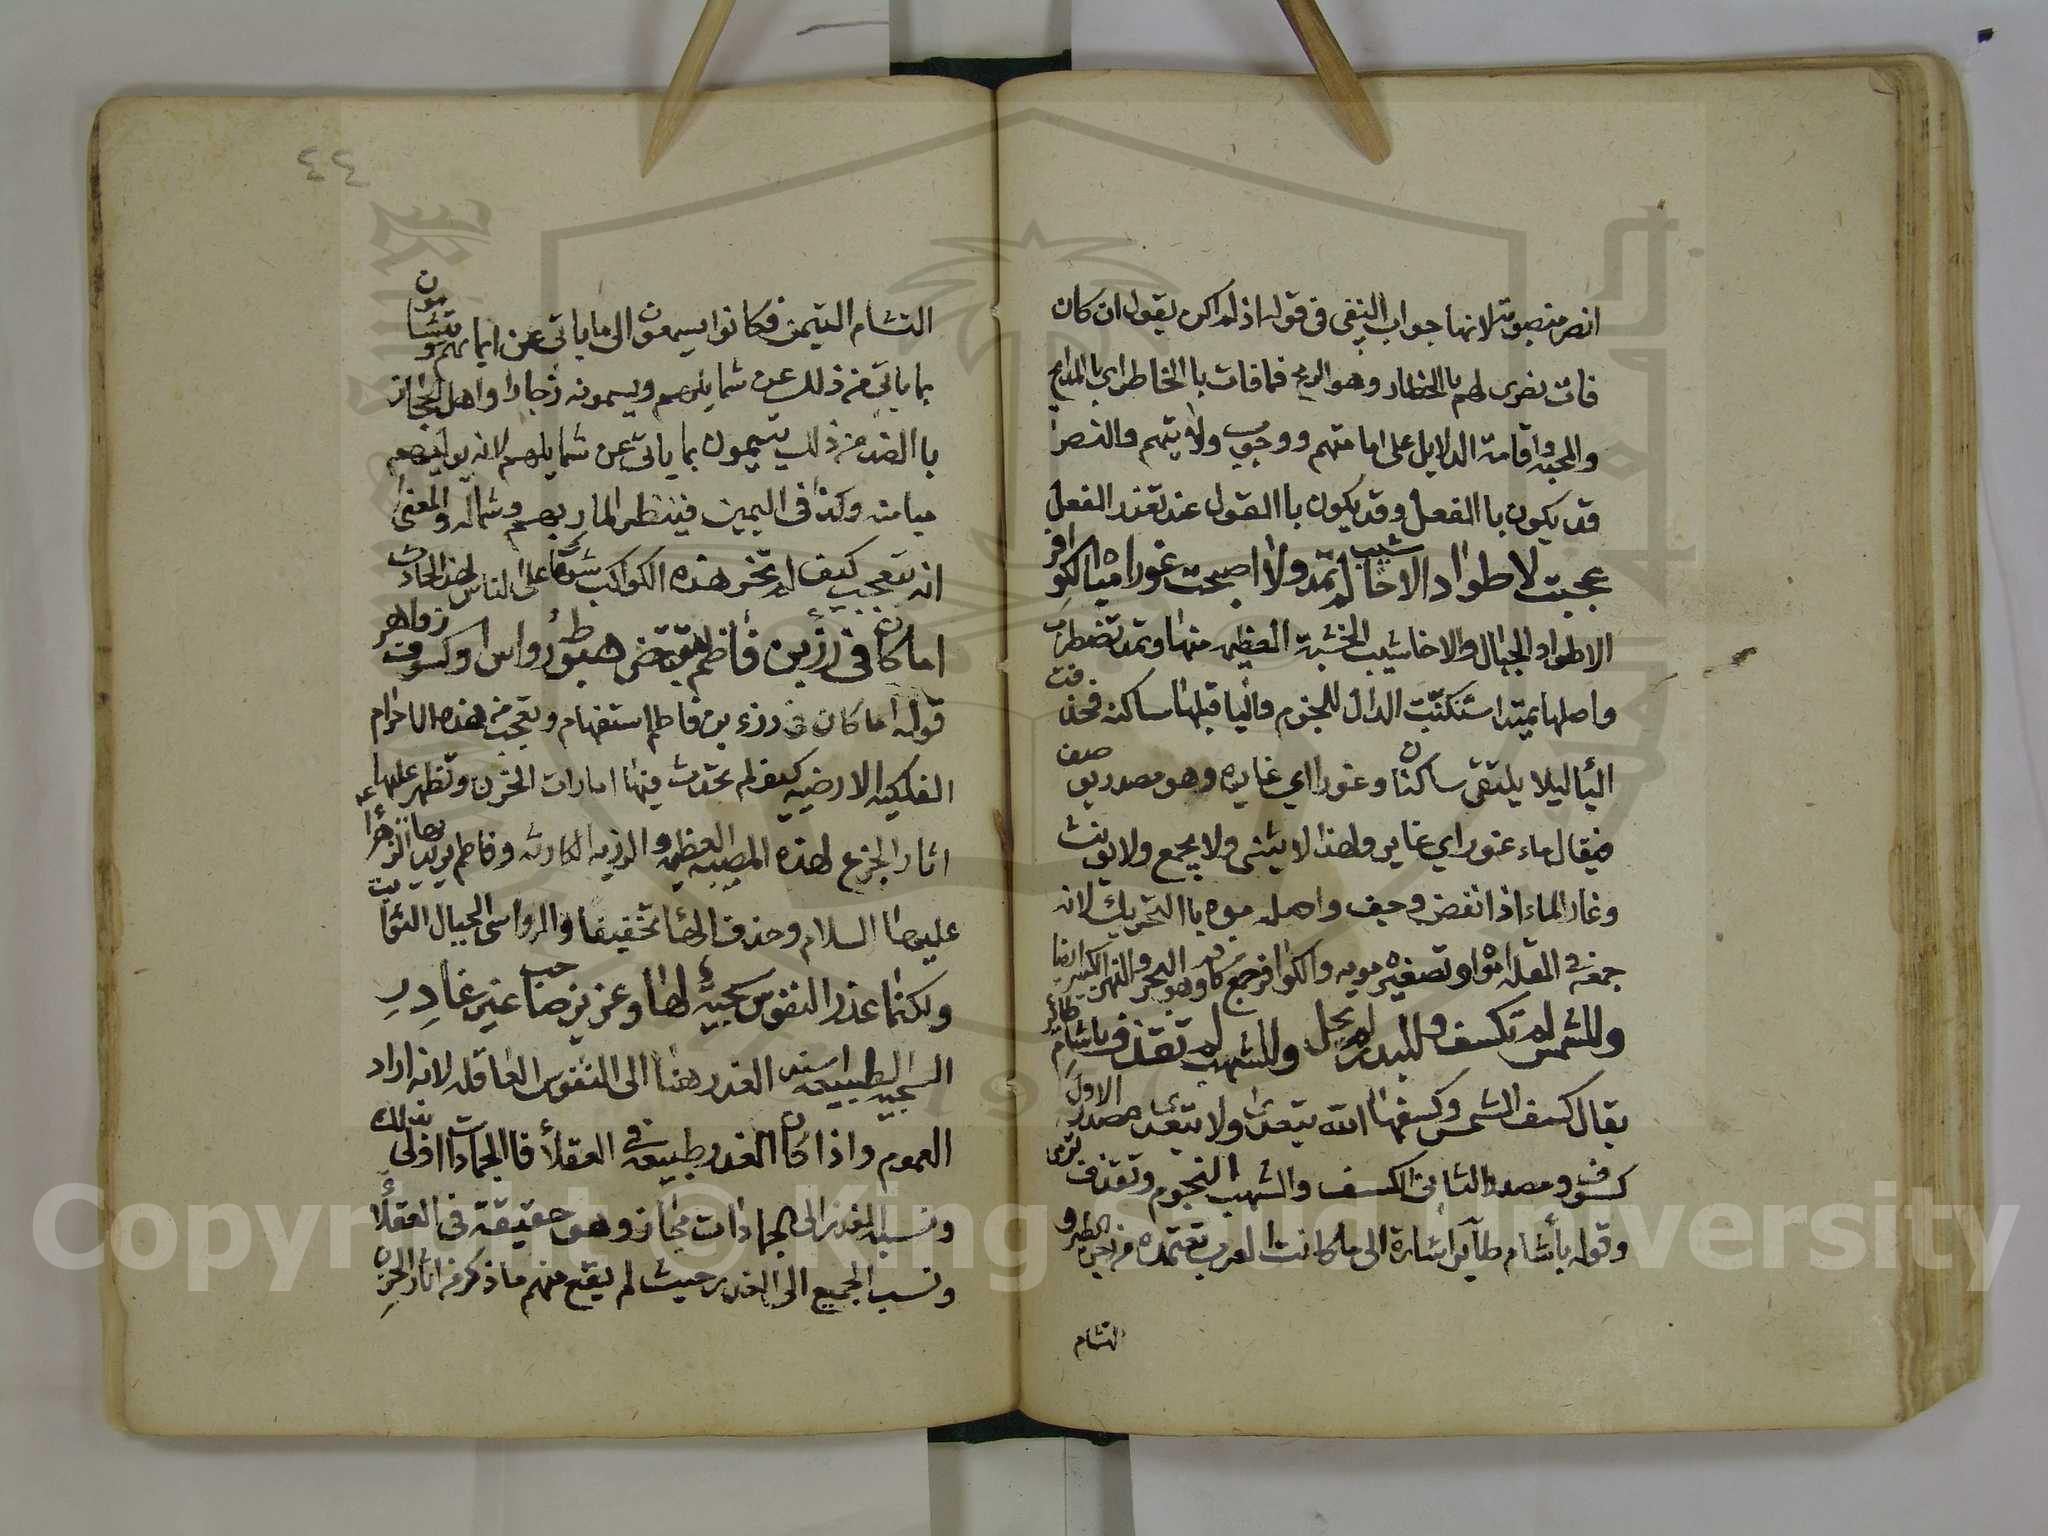 انصر منصوبة لانها جواب النفي في قوله اذ لم اكن يقول ان كان
فات نصرى لهم بالخطار وهو الرمح فما فات باالخاطر اي باالمدايح
والمحبه واقامة الدلايل على امامتهم ووجوب ولايتهم والنصر
قد يكون باالفعل وقد يكون باالقول عند تعذر الفعل
عجبت لاطواد الاخاشيب لم تمد ولا اصبحت غورا مياه الكوافر
الاطواد الجبال والاخاشيب الخشبة العظيمه منها وتمد تضطرب
واصلها تميد اسكنت الدال للجزوم واليا قبلها ساكنه فحذفت
اليا ليلا يلتقى ساكنان وغورا اي غايره وهو مصدر يوصف
فيقال ماء غور اي غاير ولهذا لا يثنى ولا يجمع ولا يونث
وغار الماء اذا نقض وجف واصله موه باالتحريك لانه
جمعه في القله امواه وتصغيره مويه والكوافر جمع كافر وهو البحر والنهر الكبير ايضا
وللشمس لم تكسف وللبدر لم يحل وللشهب لم تقذف باشام طائر
يقال كسف الشمس وكسفها الله يتعدى ولا يتعدى مصدر الاول
كسوف ومصدر الثاني الكسف والشهب النجوم وتقذف ترمى
وقوله بأشام طآير اشارة الى ما كانت العرب تعتمده من زجر الطير و
التشام
٤٤
التشام التيمن فكانوا يسمون الى ما ياتى عن ايمانهم ويتشامون
بما ياتى من ذلك عن شمايلهم ويسمونه زجارا واهل الحجاز
باالضد من ذلك يتيمون بما ياتى عن شمايلهم لانه يواليهم
ميامنه وكذا في اليمين فينظر المار بهم وشماله والمعنى
انه يتعجب كيف لم تخر هذه الكواكب شوما على الناس لهذا الحادث
اما كان في رزء ابن فاطم مقتضى هبوط رواس او كسوف زواهر
قوله اما كان في رزء بن فاطم استفهام وتعجب من هذه الاجرام
الفلكيه الارضيه كيف لم تحدث فيها امارات الحزن وتظهر عليها
اثار الجزع لهذه المصيبه العظيمه والرزيه الكارثه وفاطم يريد بها الزهرا
عليها السلام وحذف الها تخفيفا والرواسى الجبال الثوابت
ولكنما غدر النفوس سجية لها وعزيز صاحب غير غادر
السجيه الطبيعه اسند الغدر هنا الى النفوس العاقله لانه اراد
العموم واذا كان الغدر طبيعه في العقلا فا الجمادات اولى بذلك
ونسبه الغدر الى الجمادات مجاز وهو حقيقة فى العقلا
ونسب الجميع الى الغدر حيث لم يقع منهم ما ذكر من اثار الحزن
Copyright © King Saud University